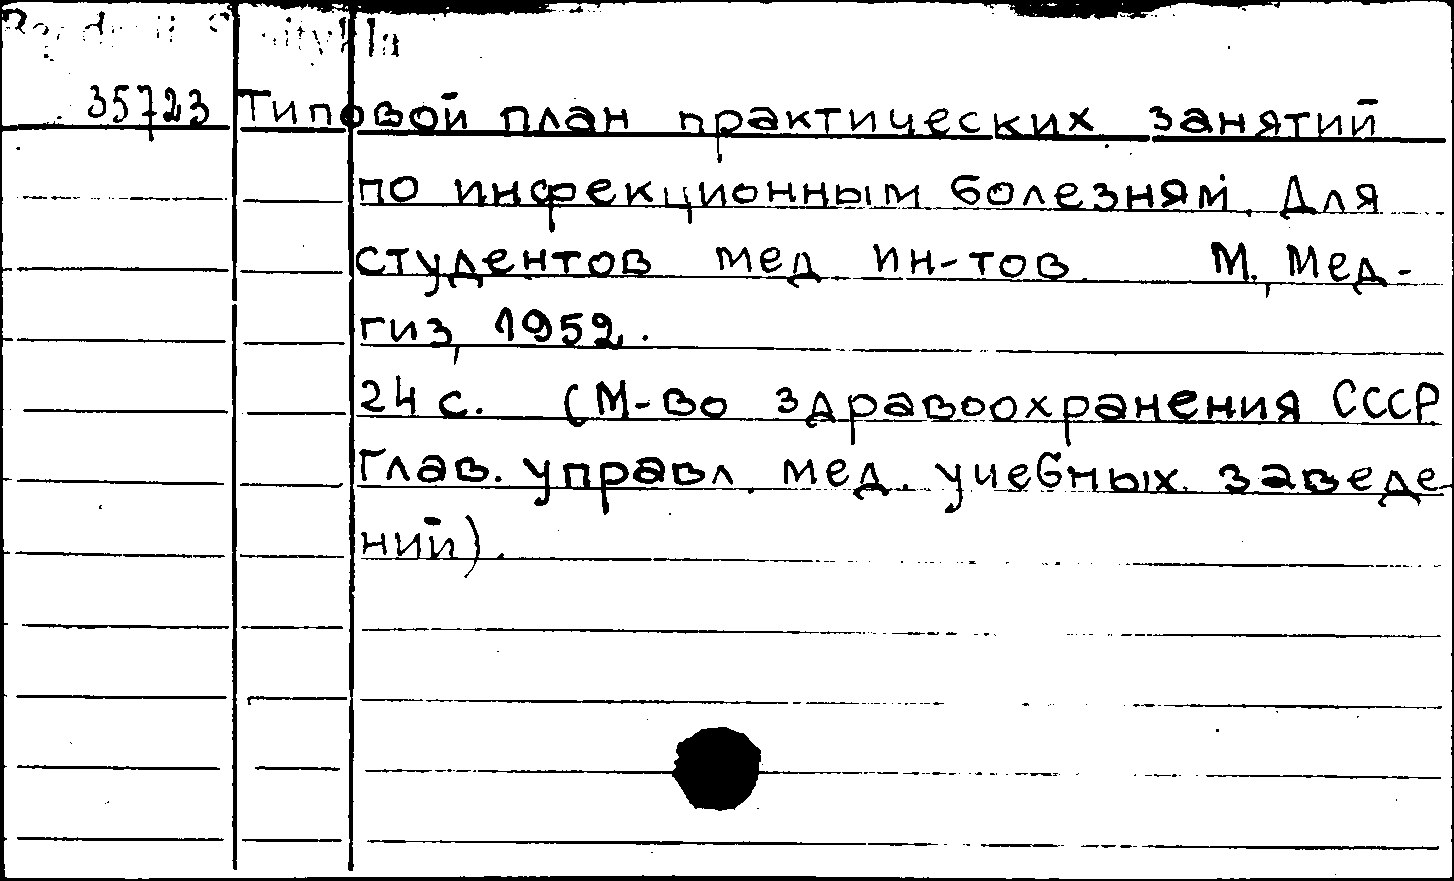 35723 Типовой план практических занятий
по инфекционным болезням. Для
студентов мед ин-тов М., Мед-
гиз, 1952.
24 с. (М-во здравоохранения СССР
Глав. управл. мед. учебных заведе-
ний).